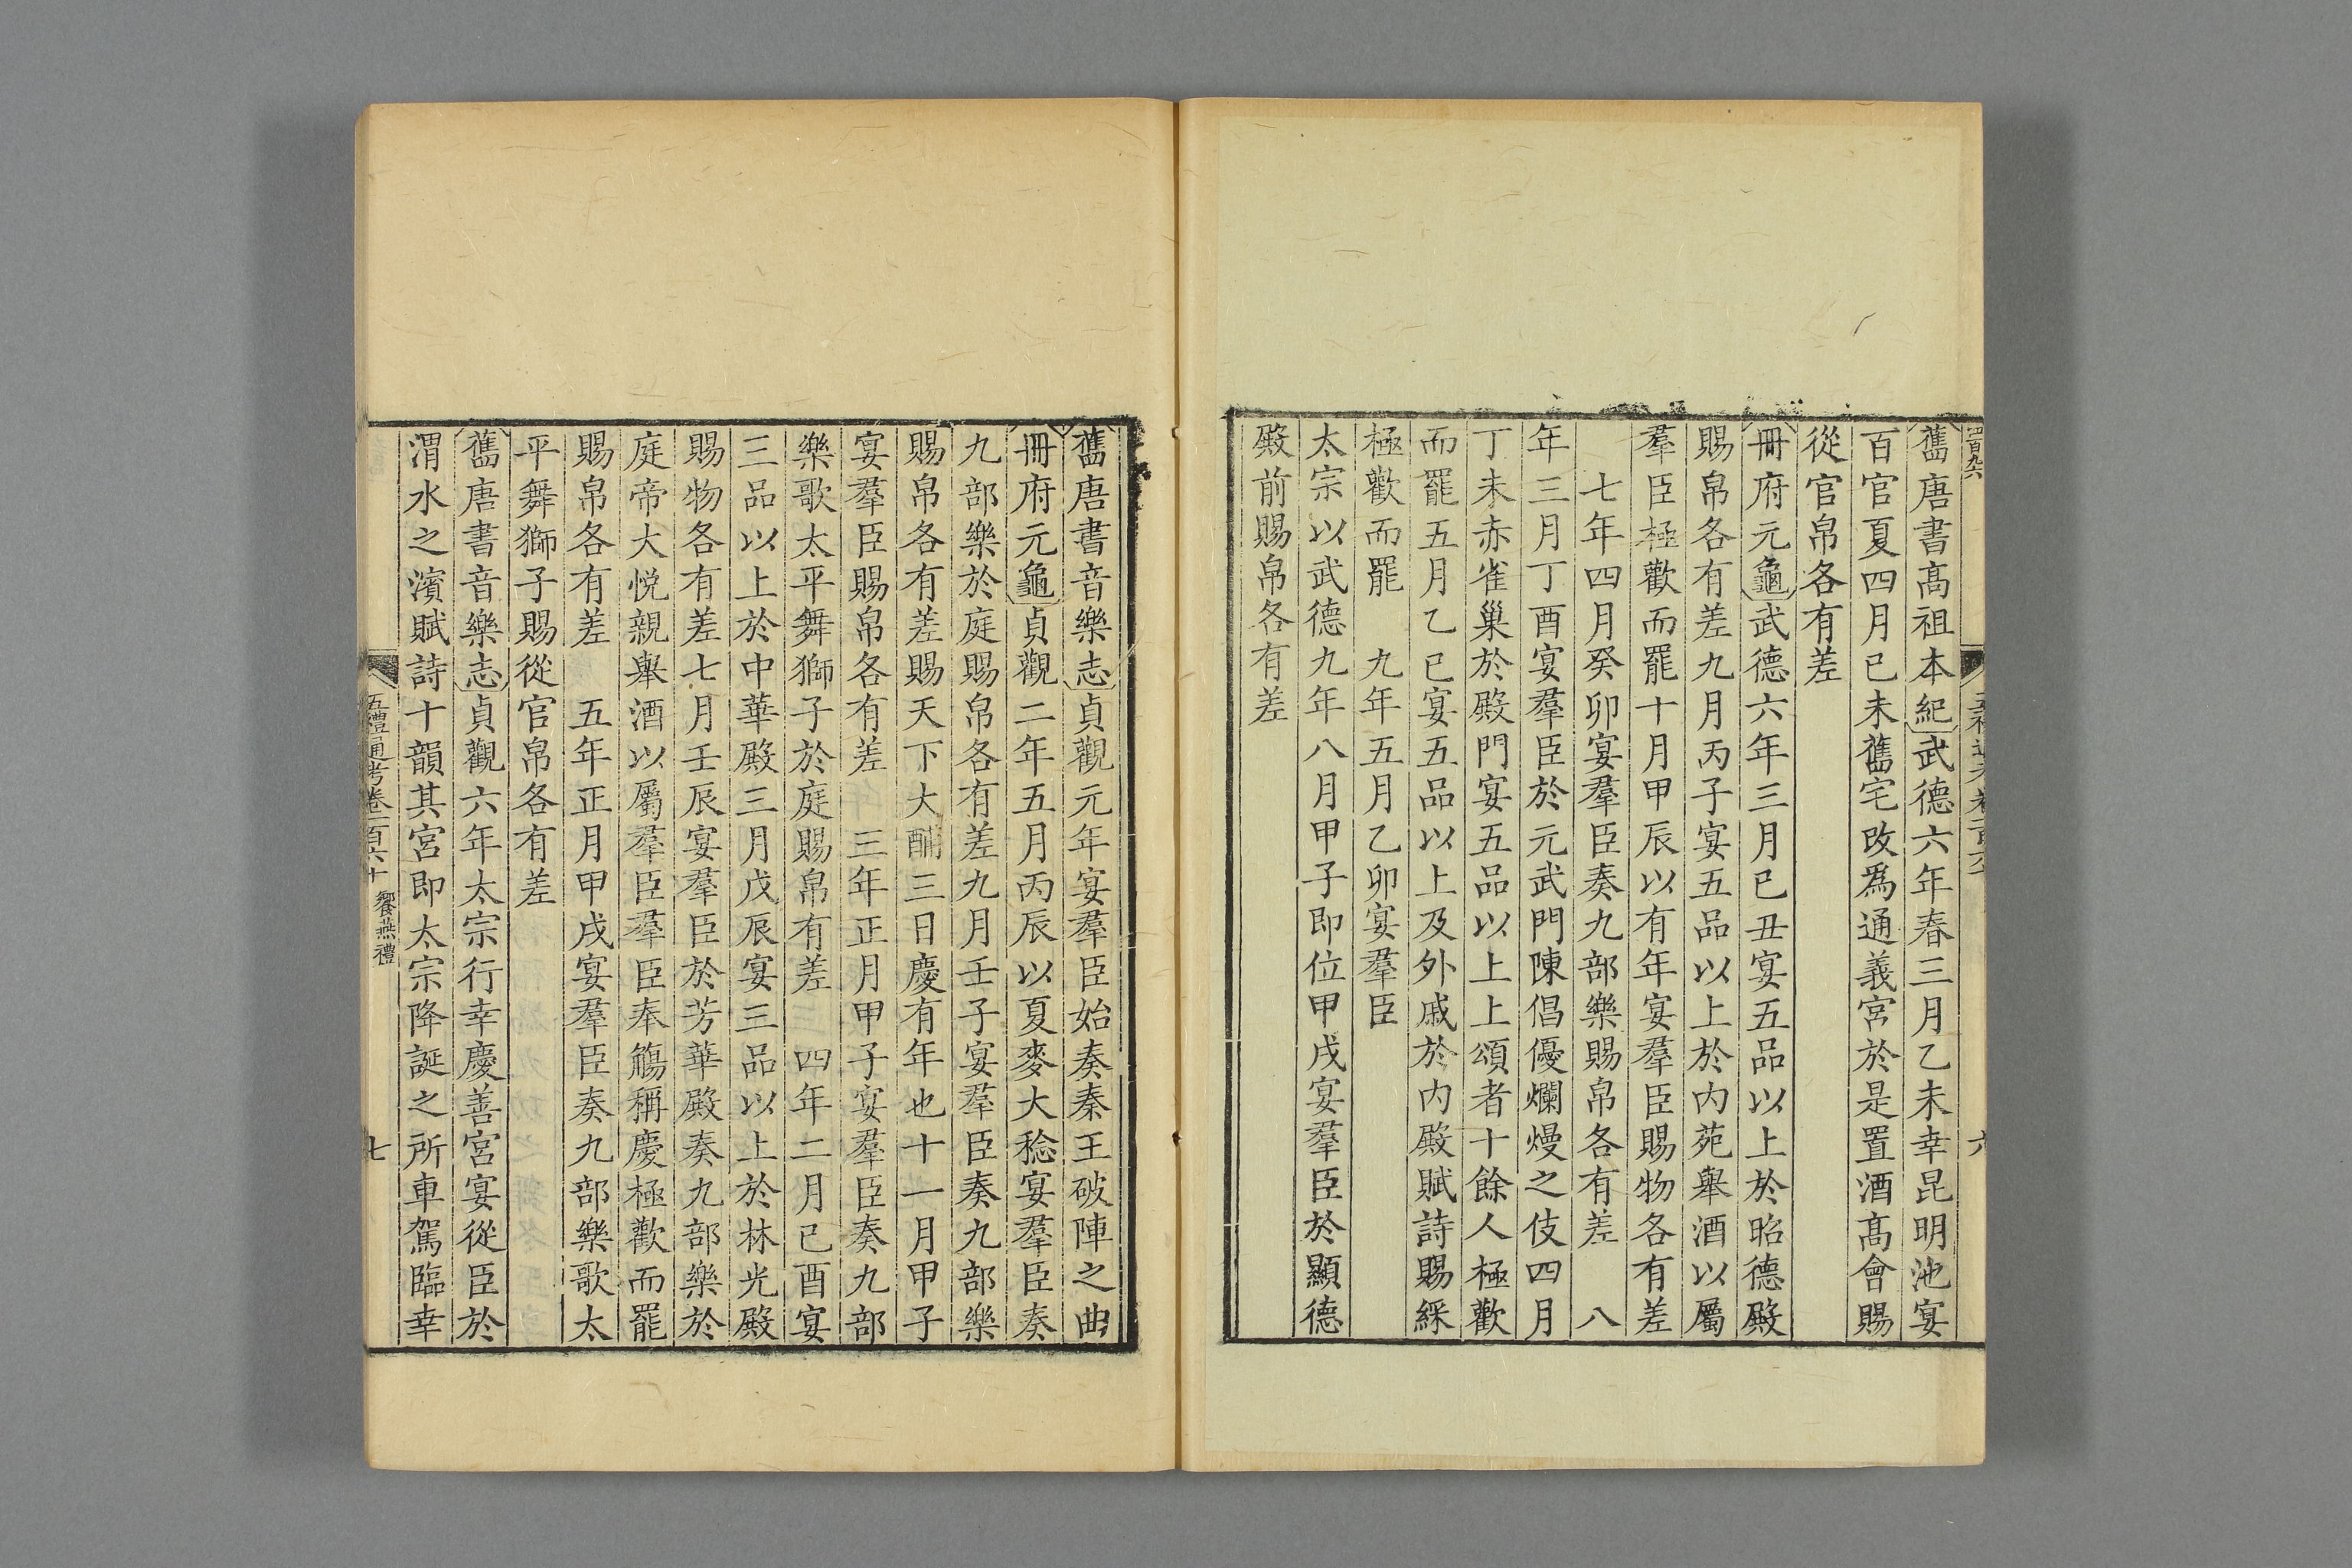 四百九六
舊唐書高祖本紀武德六年春三月乙未幸昆明池宴
百官夏四月已未舊宅改爲通義宮於是置酒高會賜
從官帛各有差
冊府元龜武德六年三月已丑宴五品以上於昭德殿
賜帛各有差九月丙子宴五品以上於內苑舉酒以屬
羣臣極歡而罷十月甲辰以有年宴羣臣賜物各有差
七年四月癸卯宴羣臣奏九部樂賜帛各有差　八
年三月丁酉宴羣臣於元武門陳倡優爛熳之伎四月
丁未赤雀巢於殿門宴五品以上上頌者十餘人極歡
而罷五月乙已宴五品以上及外戚於內殿賦詩賜綵
極歡而罷　九年五月乙卯宴羣臣
太宗以武德九年八月甲子即位甲戌宴羣臣於顯德
殿前賜帛各有差
舊唐書音樂志貞觀元年宴羣臣始奏秦王破陣之曲
冊府元龜貞觀二年五月丙辰以夏麥大稔宴羣臣奏
九部樂於庭賜帛各有差九月壬子宴羣臣奏九部樂
賜帛各有差賜天下大酺三日慶有年也十一月甲子
宴羣臣賜帛各有差　三年正月甲子宴羣臣奏九部
樂歌太平舞獅子於庭賜帛有差　四年二月已酉宴
三品以上於中華殿三月戊辰宴三品以上於林光殿
賜物各有差七月壬辰宴羣臣於芳華殿奏九部樂於
庭帝大悅親舉酒以屬羣臣羣臣奉觴稱慶極歡而罷
賜帛各有差　五年正月甲戌宴羣臣奏九部樂歌太
平舞獅子賜從官帛各有差
舊唐書音樂志貞觀六年太宗行幸慶善宮宴從臣於
渭水之濱賦詩十韻其宮即太宗降誕之所車駕臨幸
五禮通考卷一百六十　饗燕禮　七